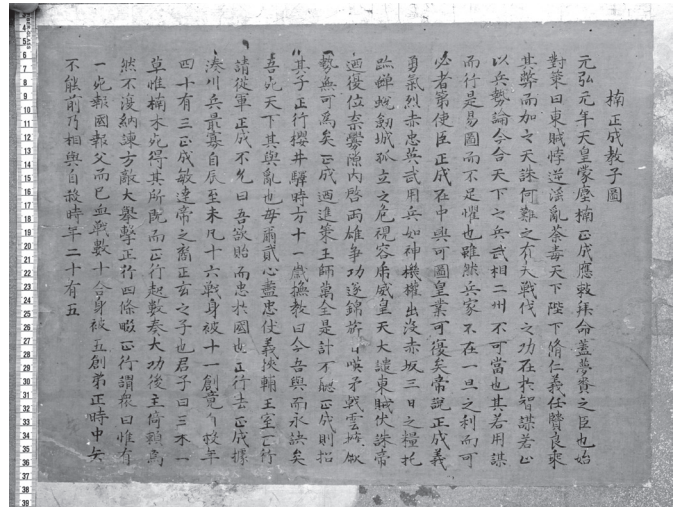 楠正成教子圖
元弘元年天皇蒙塵楠正成應敕拜命蓋夢賚之臣也始
對策曰東賊悖逆滛亂荼毒天下陛下脩仁義任賢良乘
其弊而加之天誅何難之有夫戰伐之功在於智謀若止
以兵勢論今合天下之兵武相二州不可當也其若用謀
而行是易圖而不足懼也雖然兵家不在一旦之利而可
必者第使臣正成在中興可圖皇業可復矣帝說正成義
勇氣烈赤忠英武用兵如神機權出沒赤坂三日之糧托
蟬蛻劔城孤立之危視容甫威皇天大譴東賊伏誅帝
迺復位奈釁隙內啓兩雄爭功逐錦
勢無可爲矣正成迺進策王師萬全是計不聽正成則招
其子正行櫻井驛時方十一歲撫教曰今吾與而永訣矣
吾死天下其與亂也毋肅貳心盡忠仗義挾輔王室正行
請從軍正成不允曰吾欲貽而忠於國也正行去正成據
湊川兵最寡自辰至未凡十六戰身被十一創竟自殺年
四十有三正成敏達帝之裔正玄之子也君子曰三木一
草惟楠木死得其所既而正行起數奏大功後主倚賴焉
然不沒納諫方敵大擧擊正行四條畷正行謂衆曰惟有
一死報國報父而已血戰數十合身被五創弟正時中矢
不能前乃相與自殺時年二十有五